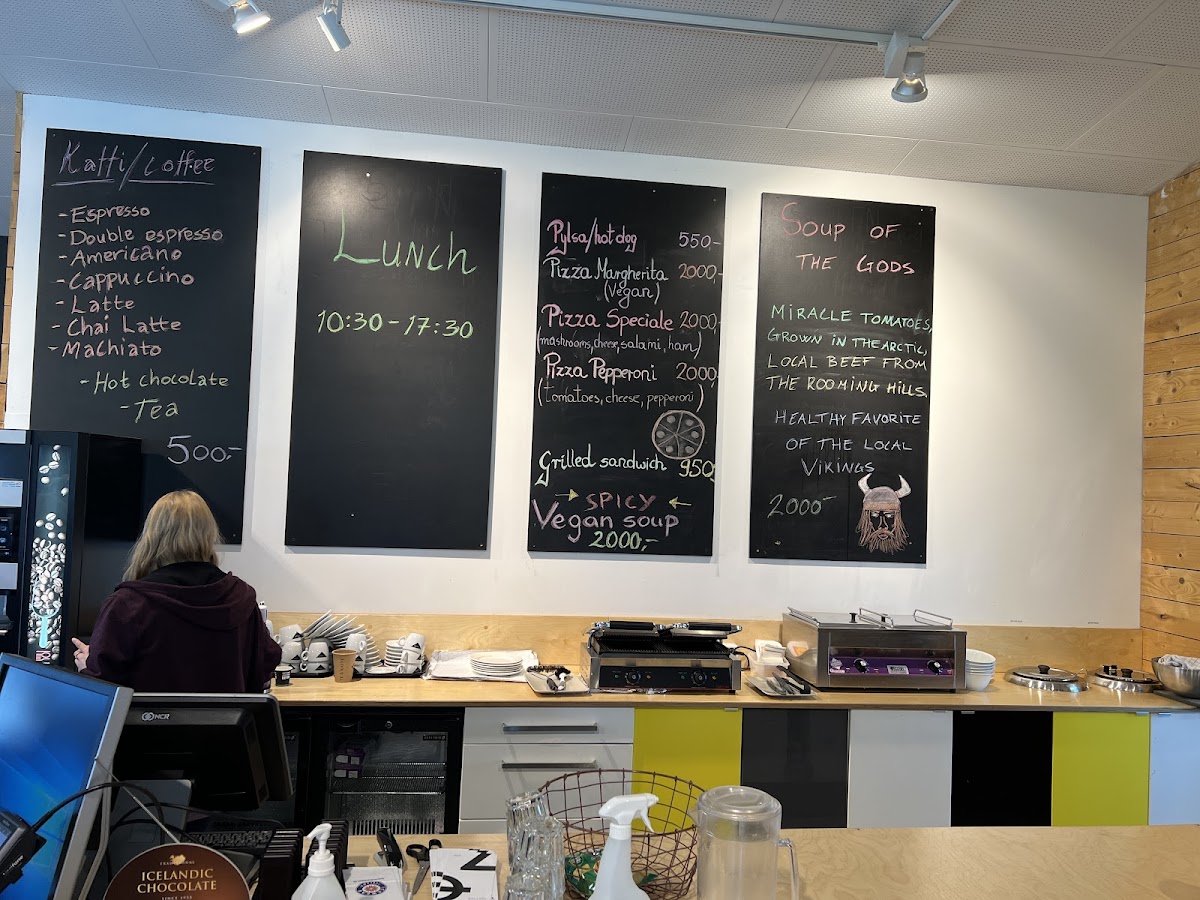 Kaffi/coffee
- Espresso
- Double espresso
- Americano
- Cappuccino
- Latte
- Chai Latte
- Machiato
- Hot chocolate
- Tea
500,-
Lunch
10:30 - 17:30
Pylsa/hot dog 550,-
Pizza Margherita 2000,-
(Vegan)
Pizza Speciale 2000,-
(mashrooms, cheese, salami, ham)
Pizza Pepperoni 2000,-
(tomatoes, cheese, pepperoni)
Grilled sandwich 950,-
→ SPICY ←
Vegan soup
2000,-
Soup of
the Gods
Miracle tomatoes,
grown in the Arctic,
local beef from
the rooming hills.
Healthy favorite
of the local
Vikings
2000,-
NCR
ICELANDIC
CHOCOLATE